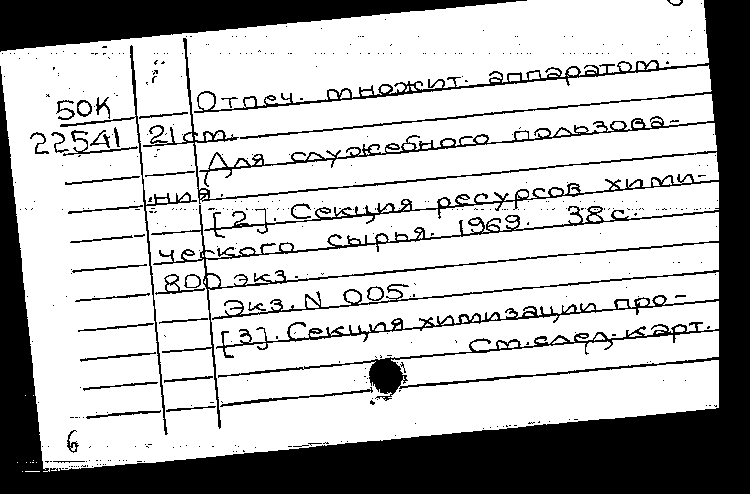 Отпеч. множит. аппаратом.
50К
22541 21 см.
Для служебного пользова-
ния.
[2]. Секция ресурсов хими-
ческого сырья. 1969. 38 с.
800 экз.
Экз. N 005.
[3]. Секция химизации про-
См. след. карт.
6